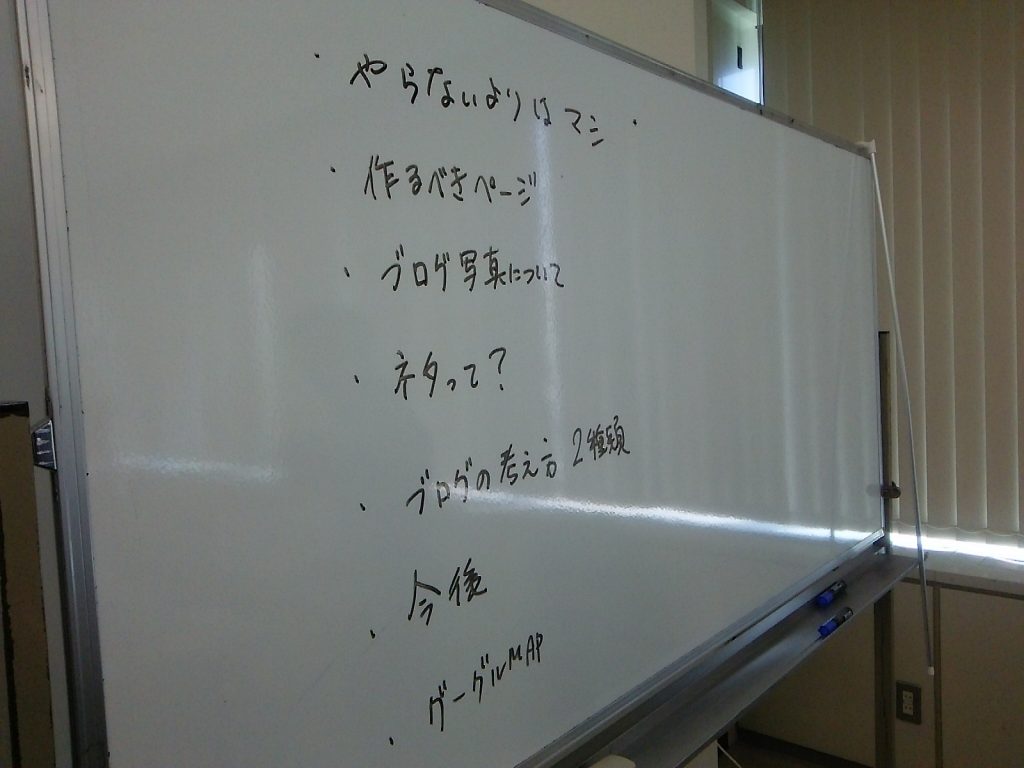 ・ やらないよりはマシ・
・ 作るべきページ
・ ブログ写真について
・ ネタって?
・ ブログの考え方 2種類
・ 今後
・ グーグルMAP